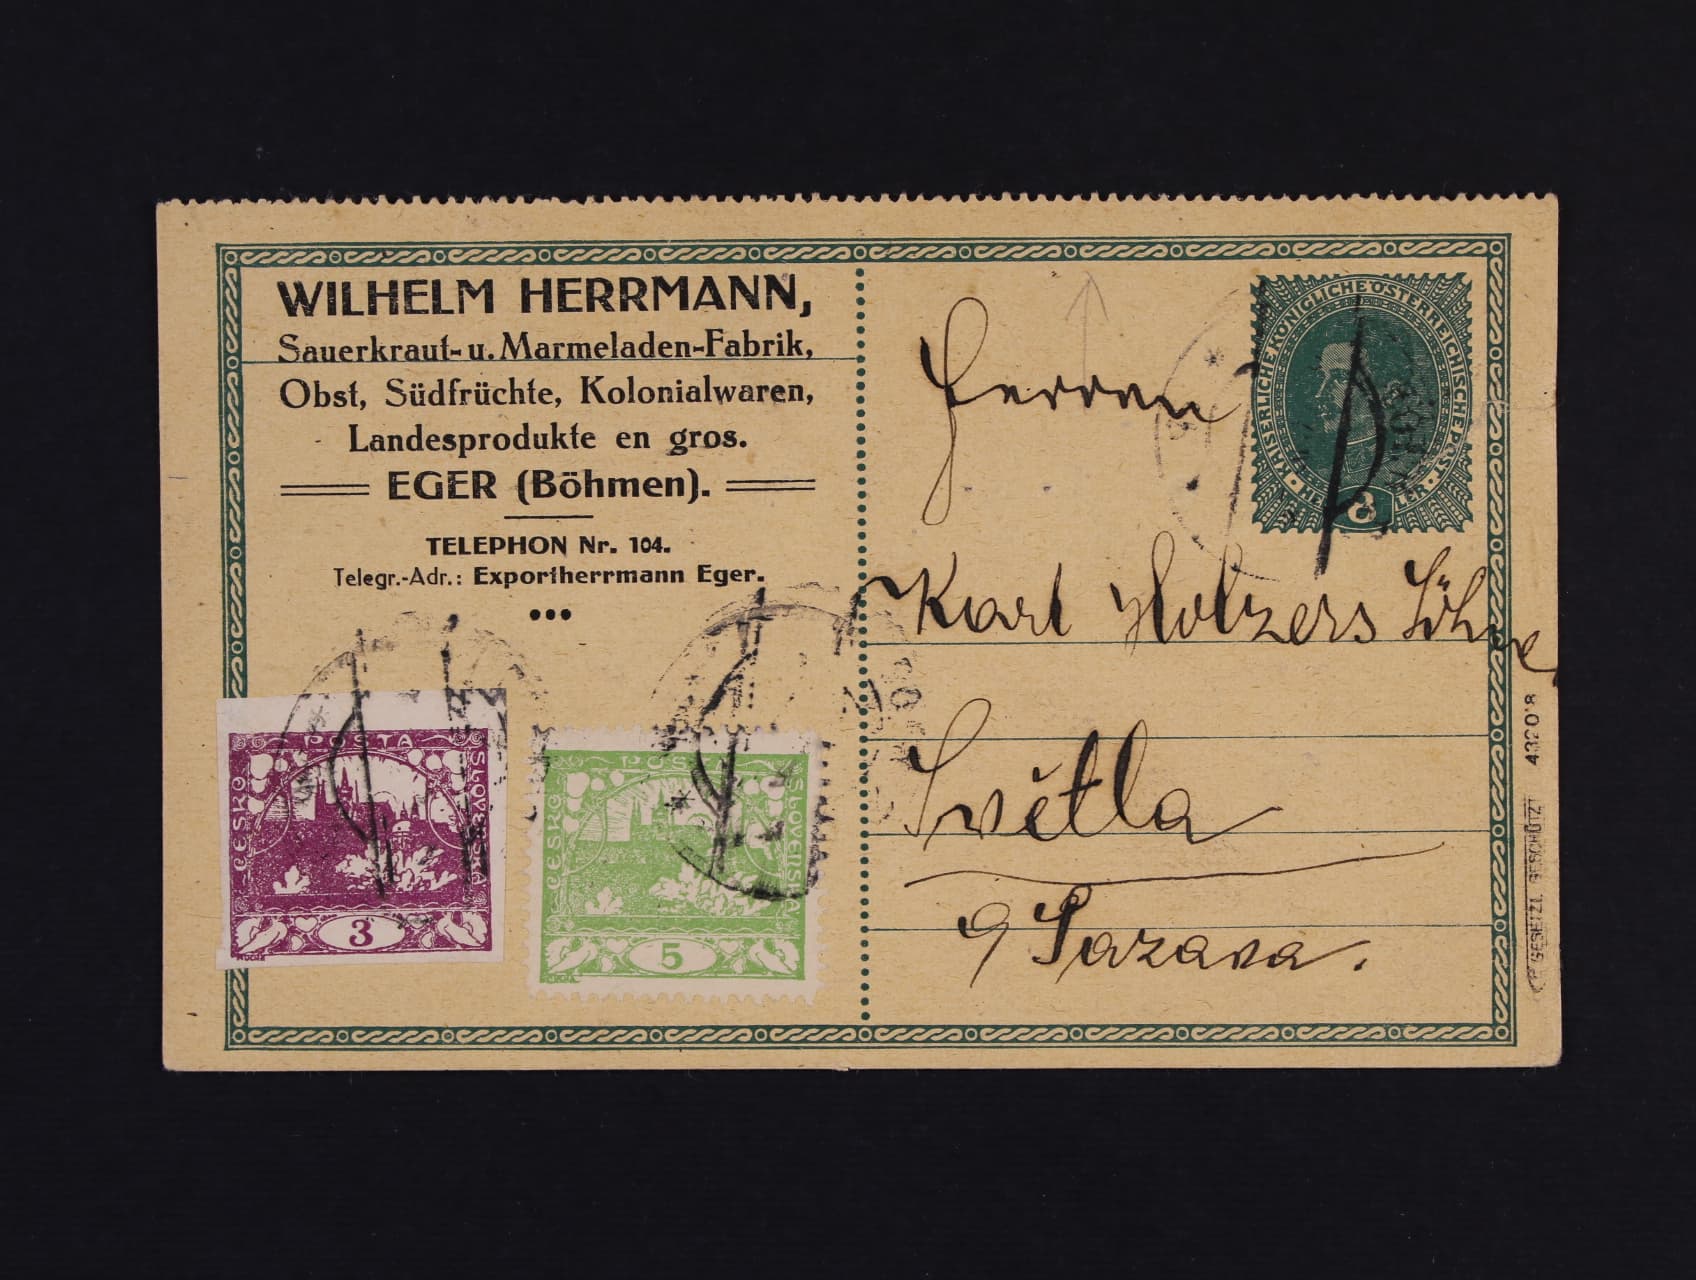 WILHELM HERRMANN,
Sauerkraut- u. Marmeladen-Fabrik,
Obst, Südfrüchte, Kolonialwaren,
Landesprodukte en gros.
EGER (Böhmen).
TELEPHON Nr. 104.
Telegr.-Adr.: Exportherrmann Eger.
KAISERLICHE KÖNIGLICHE ÖSTERREICHISCHE POST
8
Herren
Karl Holzers Söhne
Světla
9 Sazava.
POŠTA
ČESKO
SLOVENSKÁ
3
MUCHA
POŠTA
ČESKO
SLOVENSKÁ
5
GESETZL. GESCHÜTZT
4320'8